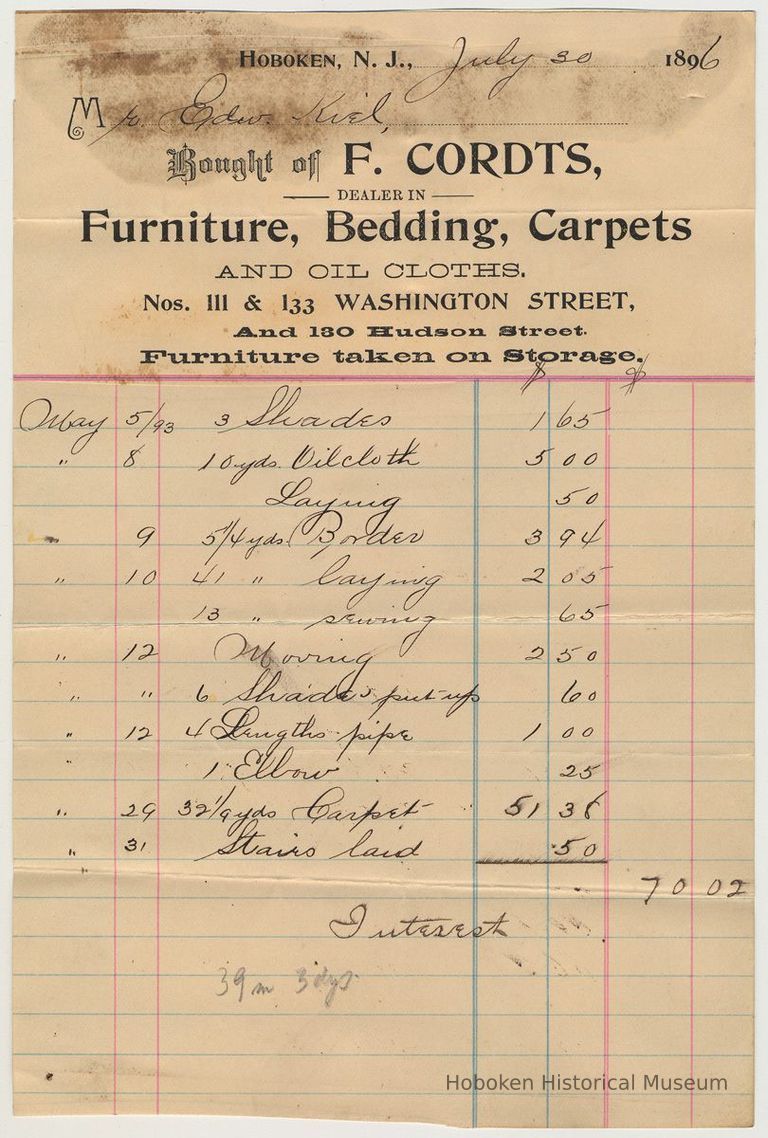 HOBOKEN, N. J., July 30 1896
Mr. Edw. Kiel,
Bought of F. CORDTS,
DEALER IN
Furniture, Bedding, Carpets
AND OIL CLOTHS.
Nos. 111 & 133 WASHINGTON STREET,
And 130 Hudson Street.
Furniture taken on Storage.
$ $
May 5/93 3 Shades 1 65
" 8 10 yds. Oilcloth 5 00
Laying 50
" 9 5 1/4 yds. Border 3 94
" 10 41 " laying 2 05
13 " sewing 65
" 12 Moving 2 50
" " 6 Shades put up 60
" 12 4 Lengths pipe 1 00
" 1 Elbow 25
" 29 32 1/9 yds Carpet 51 38
" 31 Stairs laid 50
70 02
Interest
39 m 3 dys
Hoboken Historical Museum